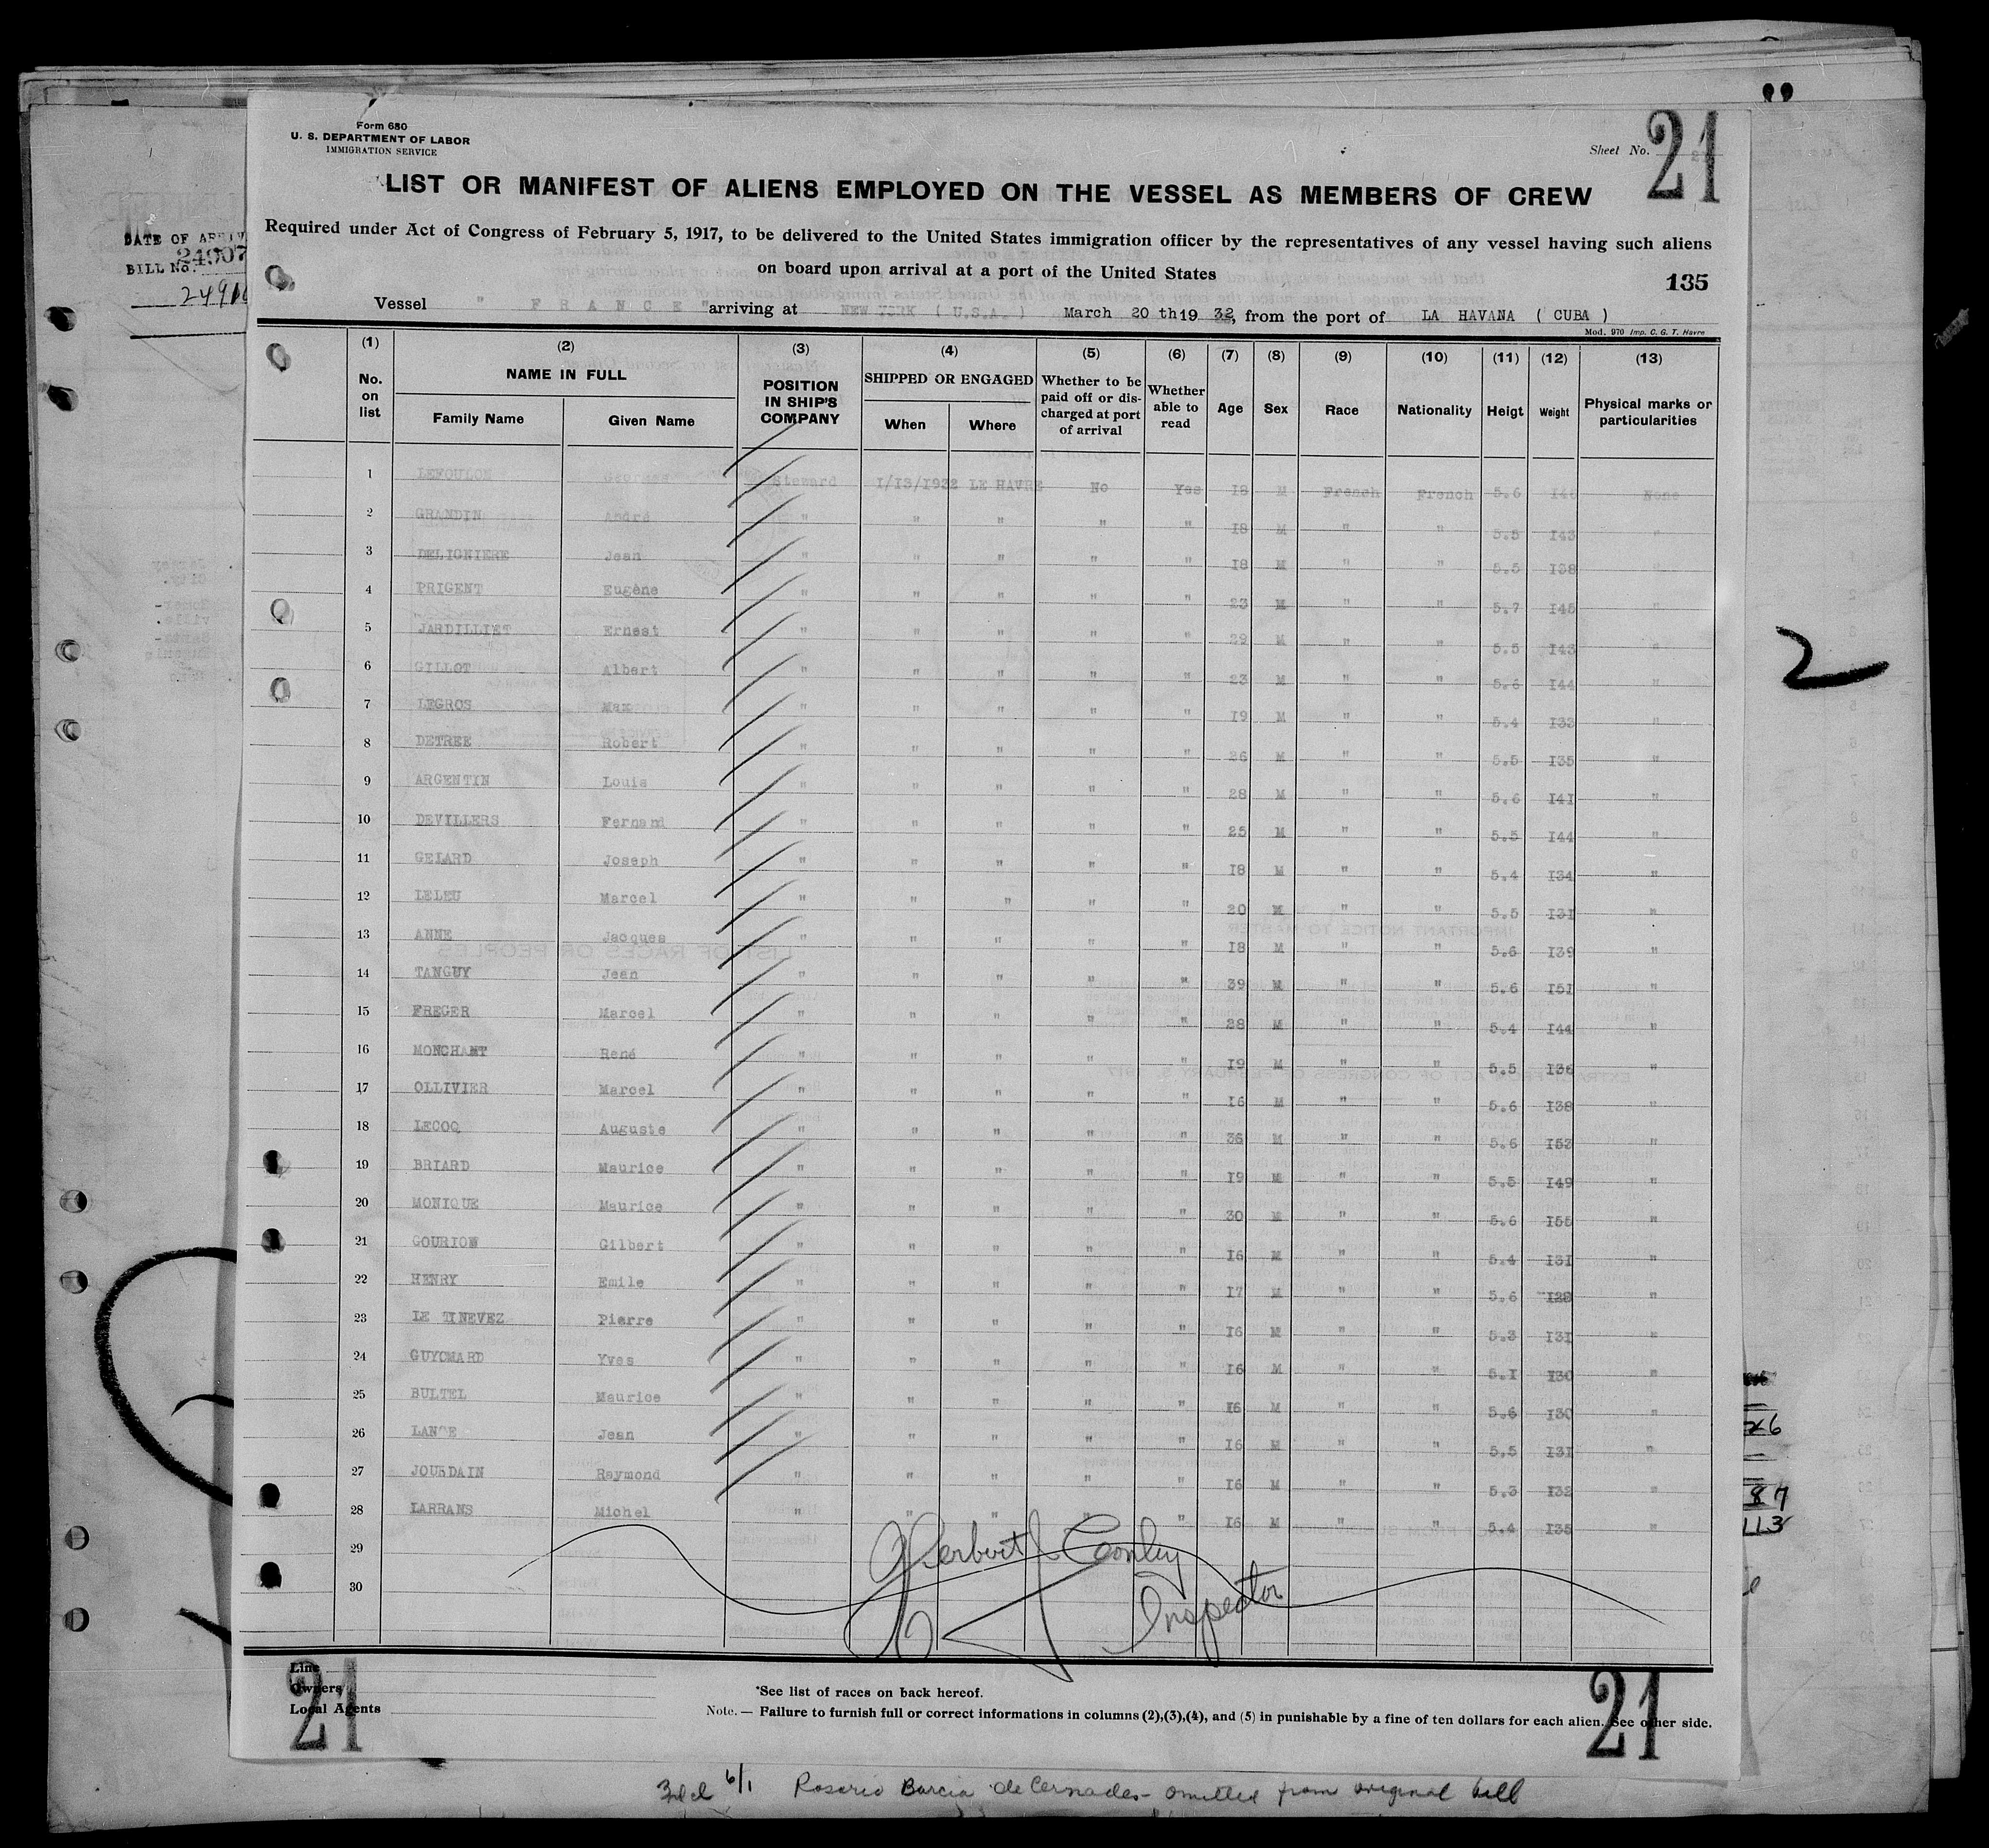 Form 680
U. S. DEPARTMENT OF LABOR
IMMIGRATION SERVICE
Sheet No.
21
LIST OR MANIFEST OF ALIENS EMPLOYED ON THE VESSEL AS MEMBERS OF CREW
Required under Act of Congress of February 5, 1917, to be delivered to the United States immigration officer by the representatives of any vessel having such aliens
on board upon arrival at a port of the United States
135
DATE OF ARRIV
24907
BILL No.
Vessel " FRANCE " arriving at NEW YORK ( U.S.A. ) March 20 th 19 32, from the port of LA HAVANA ( CUBA )
Mod. 970 Imp. C. G. T. Havre
(1) (2) (3) (4) (5) (6) (7) (8) (9) (10) (11) (12) (13)
No. on list NAME IN FULL Family Name Given Name POSITION IN SHIP'S COMPANY SHIPPED OR ENGAGED When Where Whether to be paid off or discharged at port of arrival Whether able to read Age Sex Race Nationality Heigt Weight Physical marks or particularities
1 LEFOULON Georges Steward I/I3/I932 LE HAVRE No Yes I8 M French French 5.6 I40 None
2 GRANDIN André " " " " " I8 M " " 5.5 I43 "
3 DELIGNIERE Jean " " " " " I8 M " " 5.5 I38 "
4 PRIGENT Eugène " " " " " 23 M " " 5.7 I45 "
5 JARDILLIET Ernest " " " " " 29 M " " 5.5 I43 "
6 GILLOT Albert " " " " " 23 M " " 5.6 I44 "
7 LEGROS Max " " " " " I9 M " " 5.4 I33 "
8 DETREE Robert " " " " " 26 M " " 5.5 I35 "
9 ARGENTIN Louis " " " " " 28 M " " 5.6 I4I "
10 DEVILLERS Fernand " " " " " 25 M " " 5.5 I44 "
11 GELARD Joseph " " " " " I8 M " " 5.4 I34 "
12 LELEU Marcel " " " " " 20 M " " 5.5 I3I "
13 ANNE Jacques " " " " " I8 M " " 5.6 I39 "
14 TANGUY Jean " " " " " 39 M " " 5.6 I5I "
15 FREGER Marcel " " " " " 28 M " " 5.4 I44 "
16 MONCHANT René " " " " " I9 M " " 5.5 I36 "
17 OLLIVIER Marcel " " " " " I6 M " " 5.6 I38 "
18 LECOQ Auguste " " " " " 36 M " " 5.6 I53 "
19 BRIARD Maurice " " " " " I9 M " " 5.5 I49 "
20 MONIQUE Maurice " " " " " 30 M " " 5.6 I55 "
21 GOURIOW Gilbert " " " " " I6 M " " 5.4 I3I "
22 HENRY Emile " " " " " I7 M " " 5.6 "
23 LE TINEVEZ Pierre " " " " " I6 M " " 5.3 I3I "
24 GUYOMARD Yves " " " " " I6 M " " 5.I I30 "
25 BULTEL Maurice " " " " " I6 M " " 5.6 I30 "
26 LANCE Jean " " " " " I6 M " " 5.5 I3I "
27 JOURDAIN Raymond " " " " " I6 M " " 5.3 I32 "
28 LARRANS Michel " " " " " I6 M " " 5.4 I35 "
29
30
Herbert J. Conley
Inspector
2
26
87
113
Line
Owners
Local Agents
21
21
*See list of races on back hereof.
Note. — Failure to furnish full or correct informations in columns (2),(3),(4), and (5) in punishable by a fine of ten dollars for each alien. See other side.
6/1 Rosario Barcia de Cernades - omitted from original bill